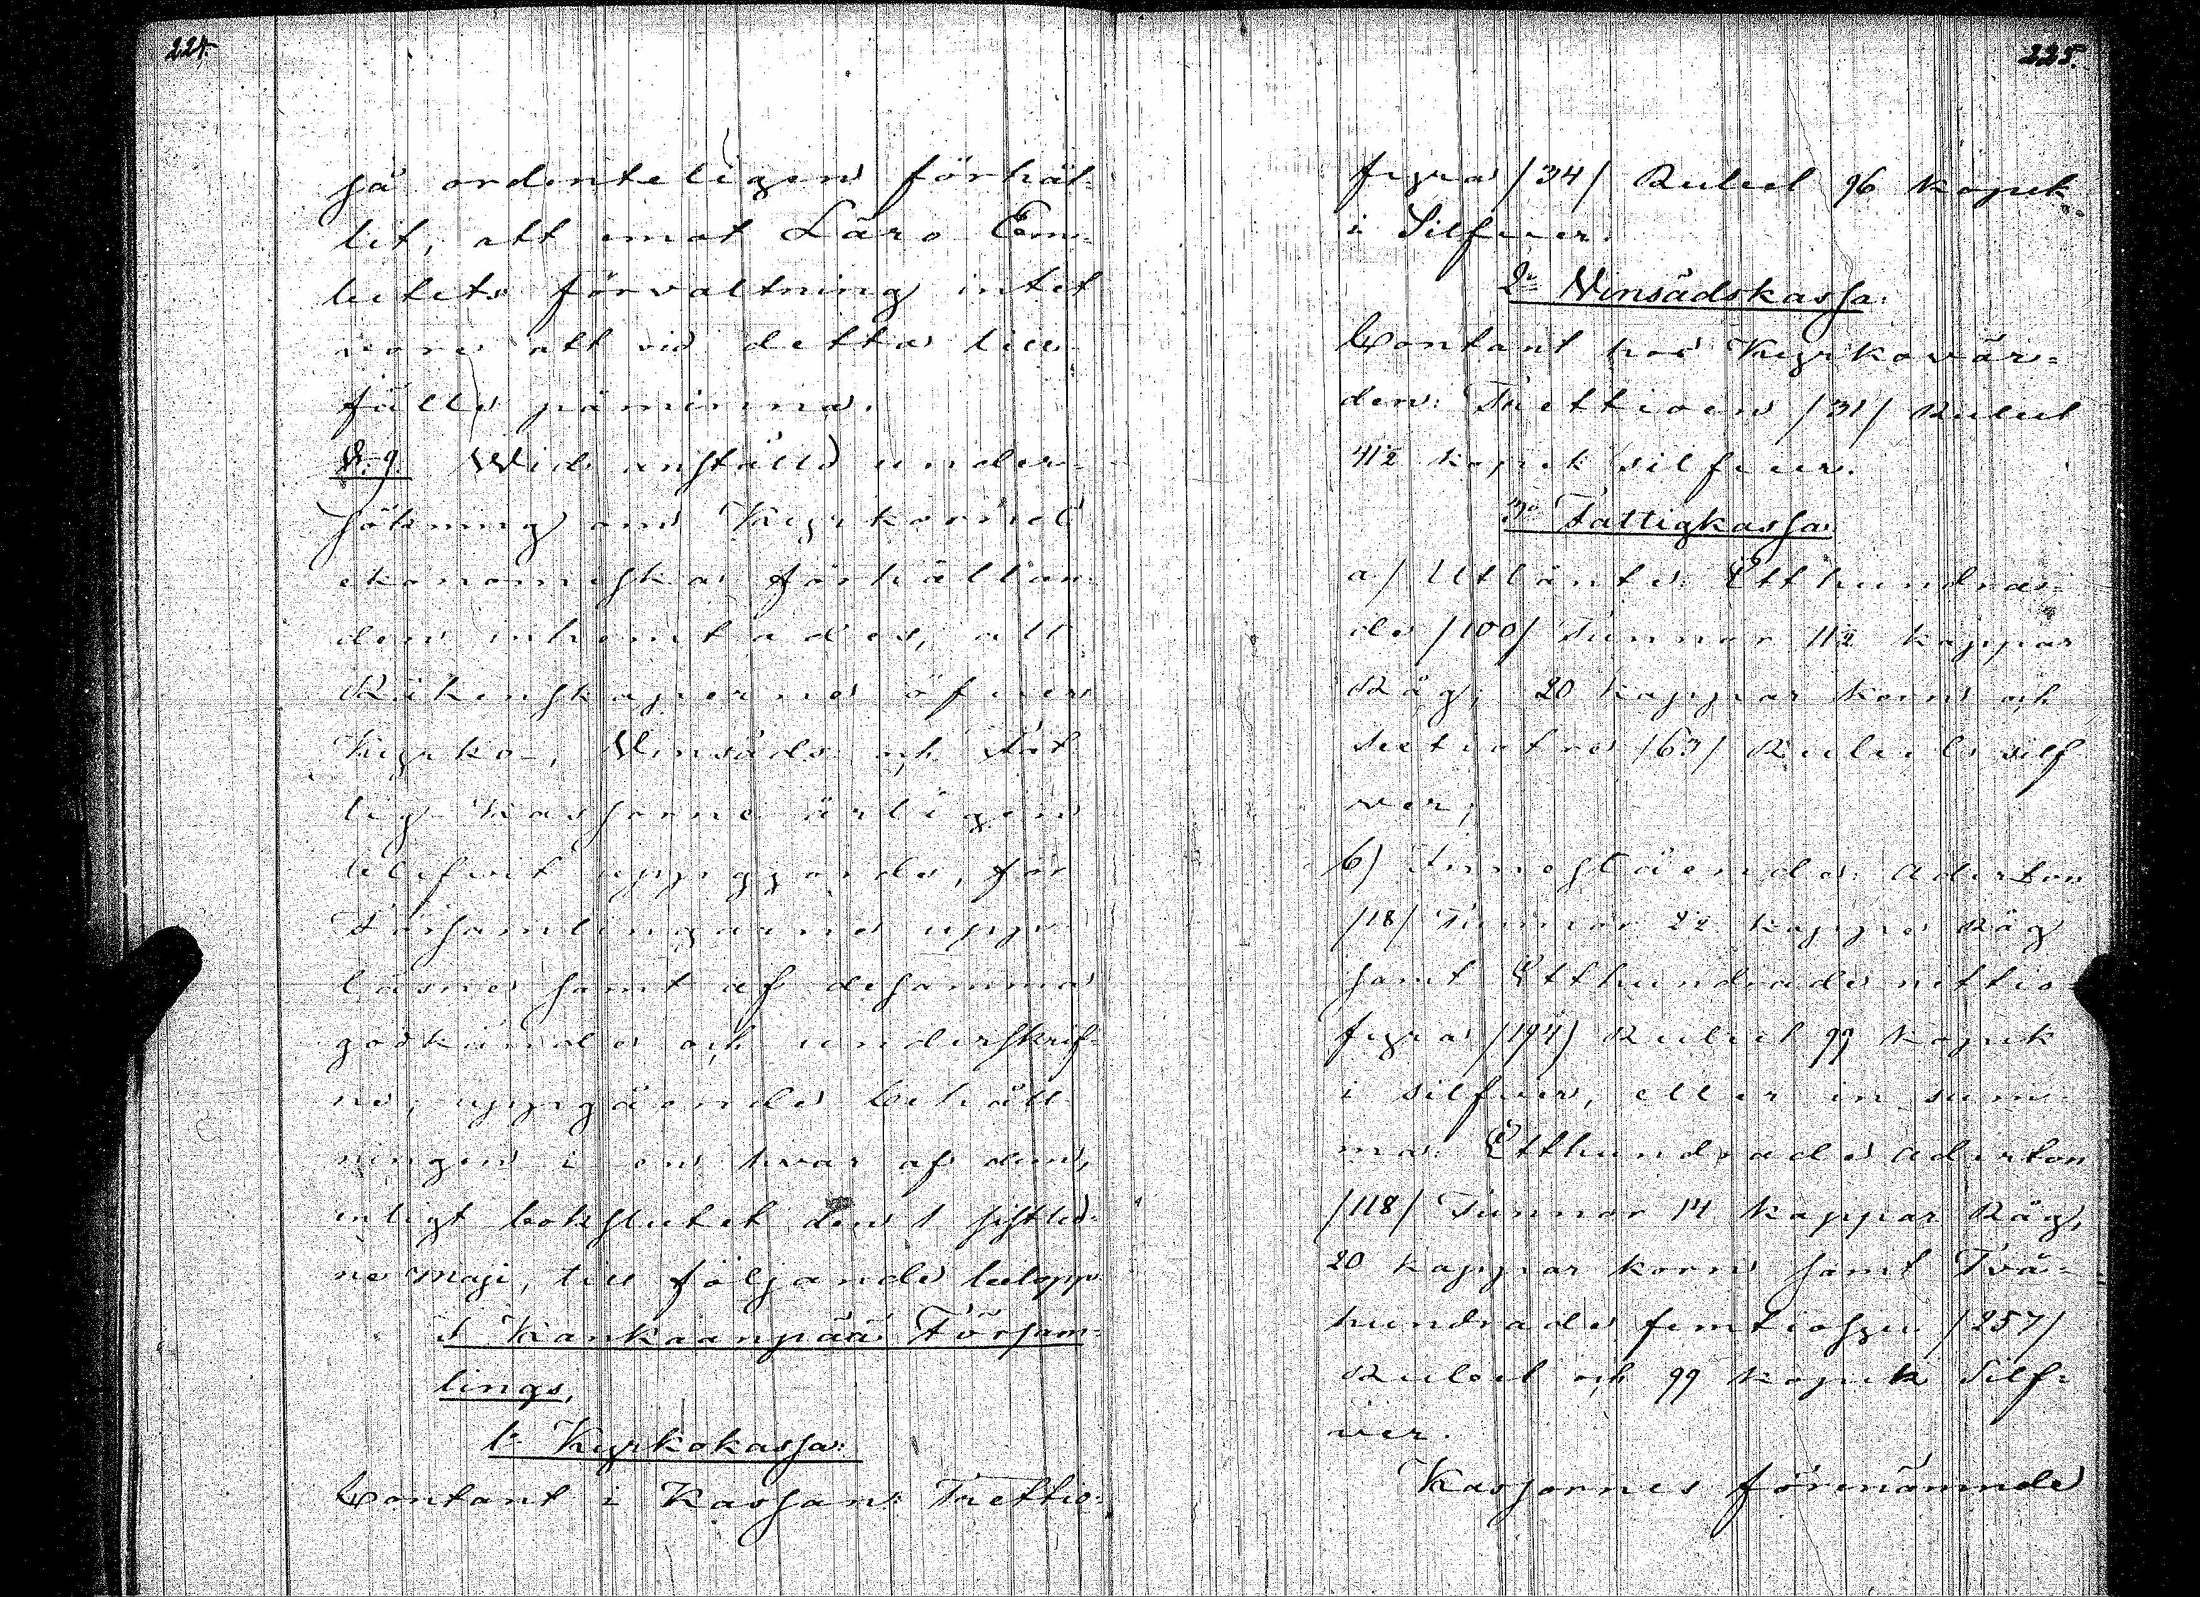 224.
så ordenteligen förhål-
lit, att emot Läro Em-
betets förvaltning intet
vore att vid detta till-
fälle påminna.
§. 9. Wid anställd under-
sökning om Kyrkornes
ekonomiska förhållan-
den inhemtades, att
Räkenskaperne öfver
Kyrko-, Vinsäds- och Fat-
tig-Kassorne årligen
blifvit uppgjorde, för
Församlingarne upp-
läsne samt af desamma
godkände och underskrif-
ne; uppgående behåll-
ningen i en hvar af dem,
enligt bokslutet den 1 sistled-
ne Maji, till följande belopp
I Kankaanpää Försam-
lings,
1o Kyrkokassa:
Contant i Kassan: Trettio-
225.
fyra /34/ Rubel 96 kopek
i Silfver.
2o Vinsädskassa:
Contant hos Kyrkovär-
den: Trettioen /31/ Rubel
41½ kopek silfver.
3o Fattigkassa:
a/ Utlånte: Etthundra-
de /100/ Tunnor 11½ kappar
Råg; 20 kappar korn och
Sextiotre /63/ Rubel silf
ver;
b) Innestående: Aderton
/18/ Tunnor 2½ kappe Råg
samt Etthundrade nittio-
fyra /194/ Rubel 99 kopek
i silfver, eller in sum-
ma: Etthundrade aderton
/118/ Tunnor 14 kappar Råg,
20 kappar korn samt Två-
hundrade femtiosju /257/
Rubel och 99 kopek Silf-
ver.
Kassornes förenämnde